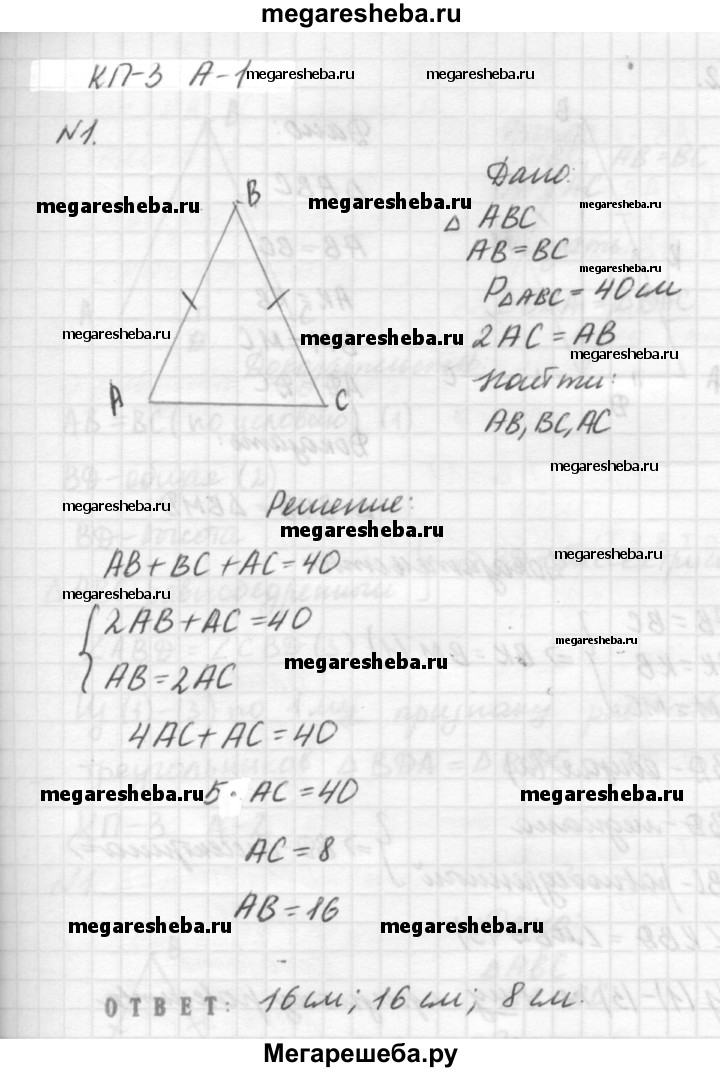 megaresheba.ru
КП-3 А-1 megaresheba.ru megaresheba.ru
№1.
Дано:
megaresheba.ru B megaresheba.ru megaresheba.ru
△ ABC
AB = BC
megaresheba.ru
P△ABC = 40 см
megaresheba.ru megaresheba.ru 2AC = AB
megaresheba.ru
Найти:
A C AB, BC, AC
megaresheba.ru
megaresheba.ru Решение:
megaresheba.ru
AB + BC + AC = 40 megaresheba.ru
megaresheba.ru
{ 2AB + AC = 40
megaresheba.ru
AB = 2AC megaresheba.ru
4AC + AC = 40
megaresheba.ru 5 · AC = 40 megaresheba.ru
AC = 8
AB = 16
megaresheba.ru megaresheba.ru
ОТВЕТ: 16 см; 16 см; 8 см.
Мегарешеба.ру